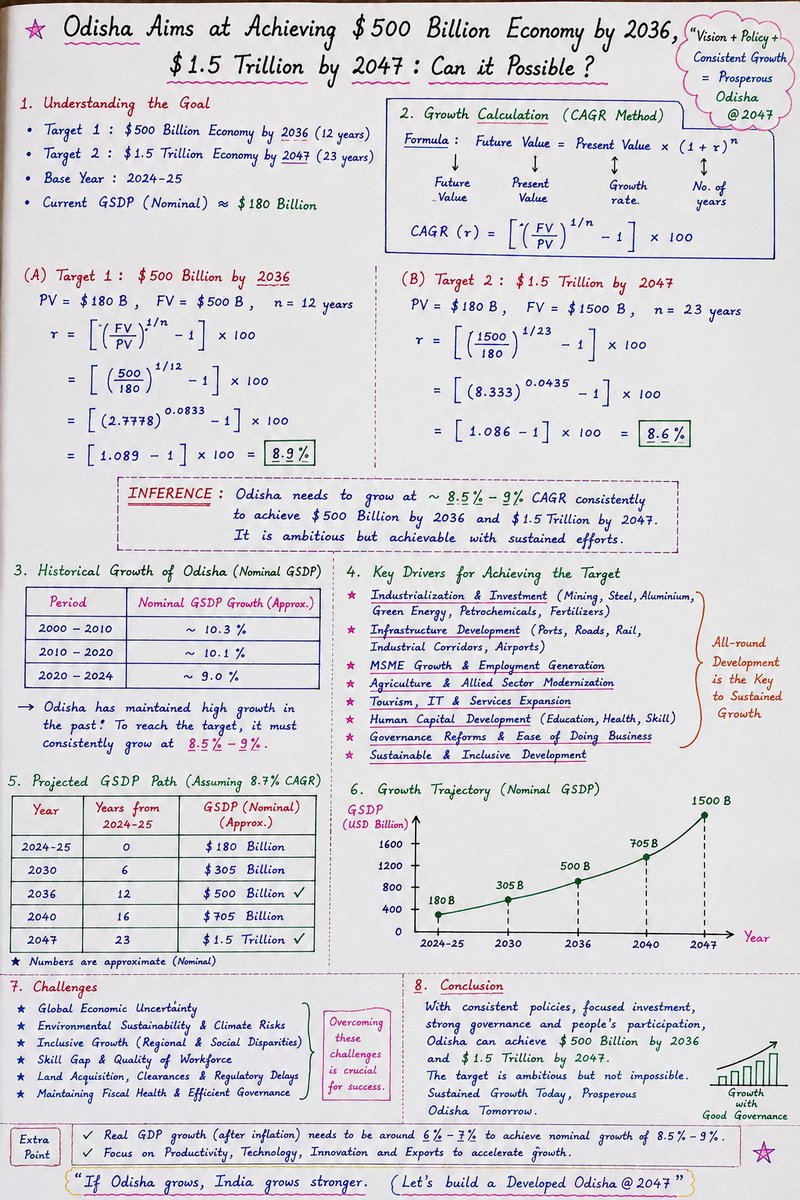 ☆ Odisha Aims at Achieving $500 Billion Economy by 2036,
$1.5 Trillion by 2047 : Can it Possible ?
"Vision + Policy +
Consistent Growth
= Prosperous
Odisha
@ 2047
1. Understanding the Goal
• Target 1 : $500 Billion Economy by 2036 (12 years)
• Target 2 : $1.5 Trillion Economy by 2047 (23 years)
• Base Year : 2024-25
• Current GSDP (Nominal) ≈ $180 Billion
2. Growth Calculation (CAGR Method)
Formula : Future Value = Present Value × (1 + r)^n
↓ ↓ ↕ ↕
Future Present Growth No. of
Value Value rate. years
CAGR (r) = [(FV/PV)^1/n − 1] × 100
(A) Target 1 : $500 Billion by 2036
PV = $180 B , FV = $500 B , n = 12 years
r = [(FV/PV)^1/n − 1] × 100
= [(500/180)^1/12 − 1] × 100
= [(2.7778)^0.0833 − 1] × 100
= [1.089 − 1] × 100 = 8.9%
(B) Target 2 : $1.5 Trillion by 2047
PV = $180 B , FV = $1500 B , n = 23 years
r = [(1500/180)^1/23 − 1] × 100
= [(8.333)^0.0435 − 1] × 100
= [1.086 − 1] × 100 = 8.6%
INFERENCE : Odisha needs to grow at ~ 8.5% − 9% CAGR consistently
to achieve $500 Billion by 2036 and $1.5 Trillion by 2047.
It is ambitious but achievable with sustained efforts.
3. Historical Growth of Odisha (Nominal GSDP)
Period Nominal GSDP Growth (Approx.)
2000 − 2010 ~ 10.3 %
2010 − 2020 ~ 10.1 %
2020 − 2024 ~ 9.0 %
→ Odisha has maintained high growth in
the past! To reach the target, it must
consistently grow at 8.5% − 9%.
4. Key Drivers for Achieving the Target
★ Industrialization & Investment (Mining, Steel, Aluminium,
Green Energy, Petrochemicals, Fertilizers)
★ Infrastructure Development (Ports, Roads, Rail,
Industrial Corridors, Airports)
★ MSME Growth & Employment Generation
★ Agriculture & Allied Sector Modernization
★ Tourism, IT & Services Expansion
★ Human Capital Development (Education, Health, Skill)
★ Governance Reforms & Ease of Doing Business
★ Sustainable & Inclusive Development
All-round
Development
is the Key
to Sustained
Growth
5. Projected GSDP Path (Assuming 8.7% CAGR)
Year Years from GSDP (Nominal)
2024-25 (Approx.)
2024-25 0 $180 Billion
2030 6 $305 Billion
2036 12 $500 Billion ✓
2040 16 $705 Billion
2047 23 $1.5 Trillion ✓
★ Numbers are approximate (Nominal)
6. Growth Trajectory (Nominal GSDP)
GSDP
(USD Billion)
1600
1200
800
400
0
180 B
305 B
500 B
705 B
1500 B
2024-25 2030 2036 2040 2047 Year
7. Challenges
★ Global Economic Uncertainty
★ Environmental Sustainability & Climate Risks
★ Inclusive Growth (Regional & Social Disparities)
★ Skill Gap & Quality of Workforce
★ Land Acquisition, Clearances & Regulatory Delays
★ Maintaining Fiscal Health & Efficient Governance
Overcoming
these
challenges
is crucial
for success.
8. Conclusion
With consistent policies, focused investment,
strong governance and people's participation,
Odisha can achieve $500 Billion by 2036
and $1.5 Trillion by 2047.
The target is ambitious but not impossible.
Sustained Growth Today, Prosperous
Odisha Tomorrow.
Growth
with
Good Governance
Extra
Point
✓ Real GDP growth (after inflation) needs to be around 6% − 7% to achieve nominal growth of 8.5% − 9%.
✓ Focus on Productivity, Technology, Innovation and Exports to accelerate growth.
"If Odisha grows, India grows stronger. (Let's build a Developed Odisha @ 2047"